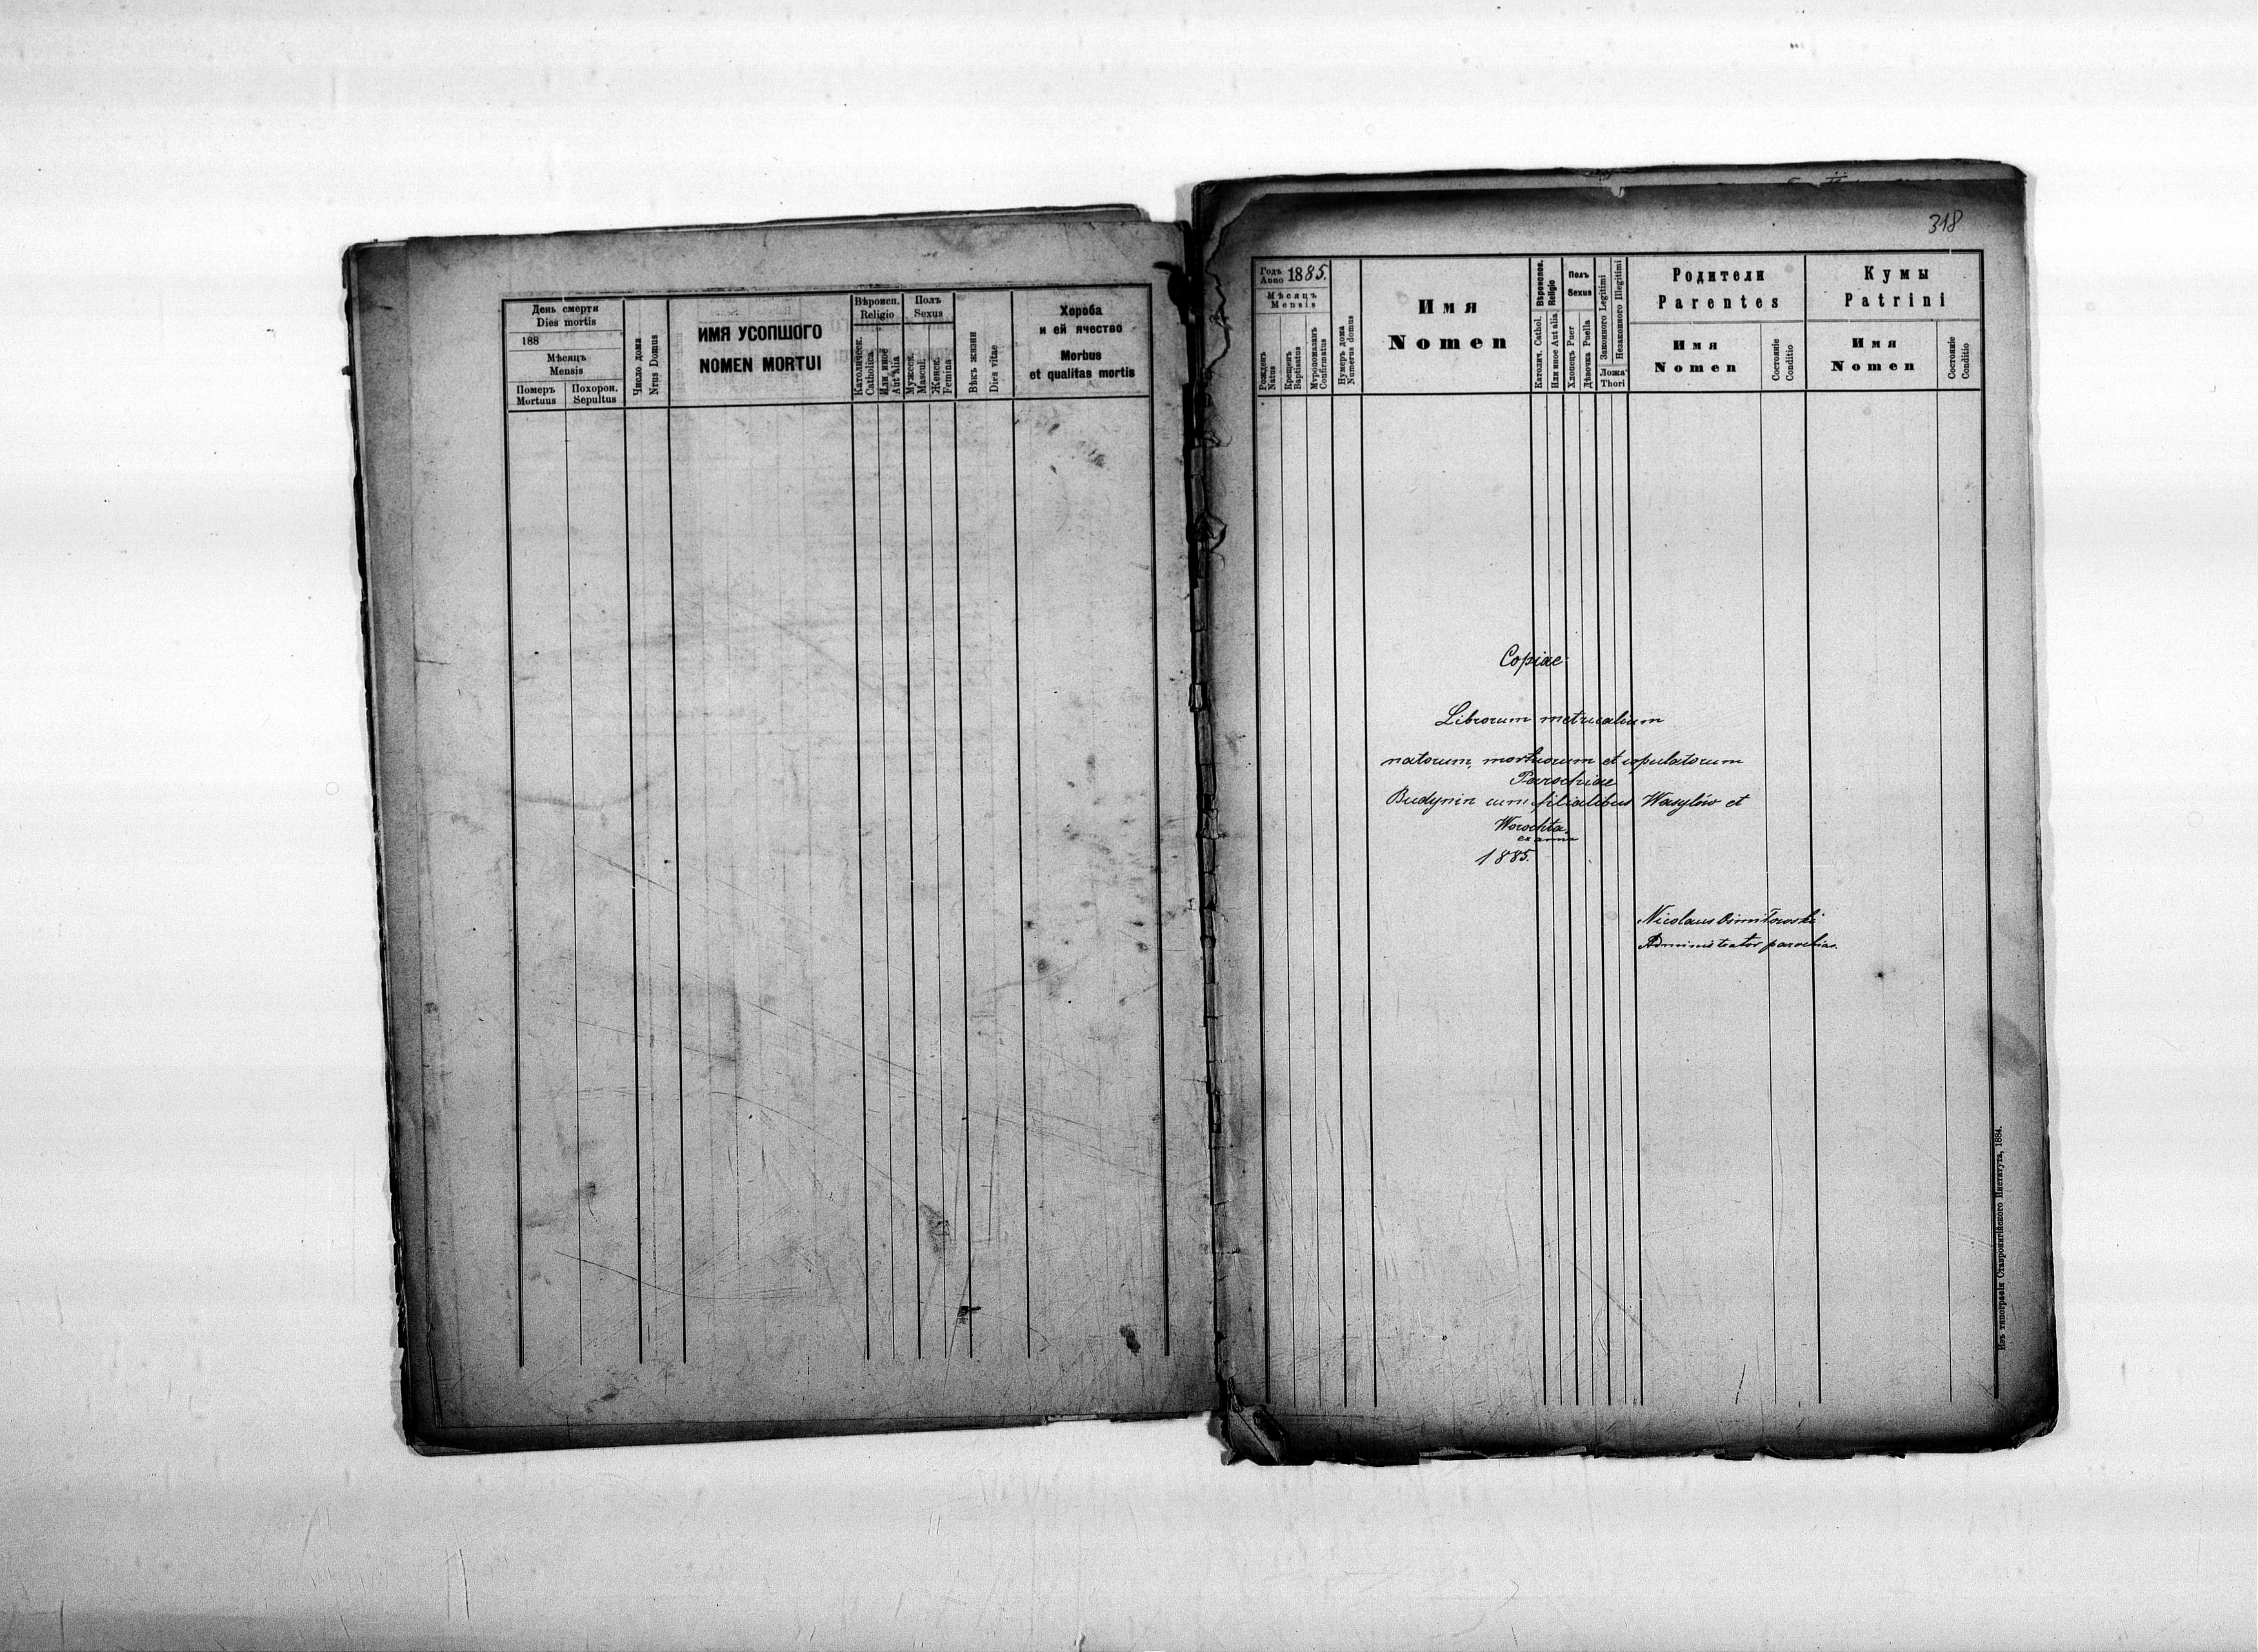 День смерти
Dies mortis
188
Мѣсяцъ
Mensis
Померъ
Mortuus
Похорон.
Sepultus
Число дома
Nrus Domus
ИМЯ УСОПШОГО
NOMEN MORTUI
Вѣроисп.
Religio
Католическ.
Catholica
Или иное
Aut alia
Полъ
Sexus
Мужеск.
Mascul.
Женск.
Femina
Вѣкъ жизни
Dies vitae
Хороба
и ей ячество
Morbus
et qualitas mortis
318
Годъ
Anno 1885.
Мѣсяцъ
Mensis
Рожденъ
Natus
Крещенъ
Baptisatus
Мѵропомазанъ
Confirmatus
Нумеръ дома
Numerus domus
Имя
Nomen
Вѣроиспов.
Religio
Католич. Cathol.
Или иное Aut alia
Полъ
Sexus
Хлопецъ Puer
Дѣвочка Puella
Законного Legitimi
Незаконного Illegitimi
Ложа
Thori
Родители
Parentes
Имя
Nomen
Состояніе
Conditio
Кумы
Patrini
Имя
Nomen
Состояніе
Conditio
Copiae
Librorum metricalium
natorum, mortuorum et copulatorum
Parochiae
Budynin cum filialibus Wasylów et
Worochta
ex anno
1885.
Nicolaus
Administrator parochiae.
Изъ типографіи Ставропигійского Института, 1884.